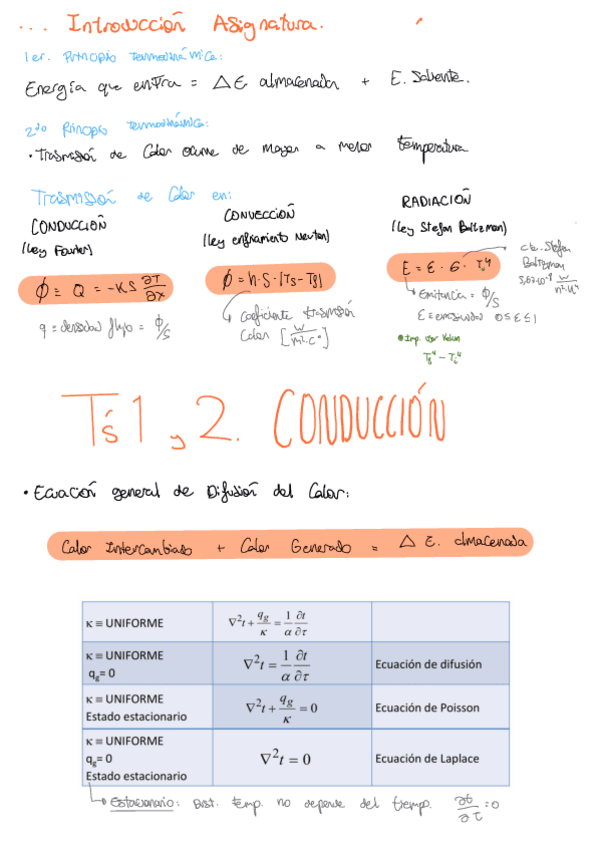 ... Introducción Asignatura.
1er. Principio termodinámica:
Energía que entra = ΔE almacenada + E. Saliente.
2do Principio termodinámica:
• Trasmisión de Calor ocurre de mayor a menor temperatura
Trasmisión de Calor en:
CONDUCCIÓN
(ley Fourier)
ϕ ≡ Q = -K S ∂T/∂x
q = densidad flujo = ϕ/S
CONVECCIÓN
(ley enfriamiento Newton)
ϕ = h · S · |Ts - Tf|
coeficiente trasmisión
Calor [W/m²·C°]
RADIACIÓN
(ley Stefan Boltzman)
E = ε · σ · T⁴
Emitancia = ϕ/S
ε = emisividad 0 ≤ ε ≤ 1
cte. Stefan
Boltzman
5,67·10⁻⁸ W/m²·K⁴
T's 1 y 2. CONDUCCIÓN
• Ecuación general de Difusión del Calor:
Calor Intercambiado + Calor Generado = Δ E. almacenada
κ ≡ UNIFORME
∇²t + q_g/κ = 1/α ∂t/∂τ
κ ≡ UNIFORME
q_g= 0
∇²t = 1/α ∂t/∂τ
Ecuación de difusión
κ ≡ UNIFORME
Estado estacionario
∇²t + q_g/κ = 0
Ecuación de Poisson
κ ≡ UNIFORME
q_g= 0
Estado estacionario
∇²t = 0
Ecuación de Laplace
Estacionario: Dist. temp. no depende del tiempo. ∂t/∂τ = 0